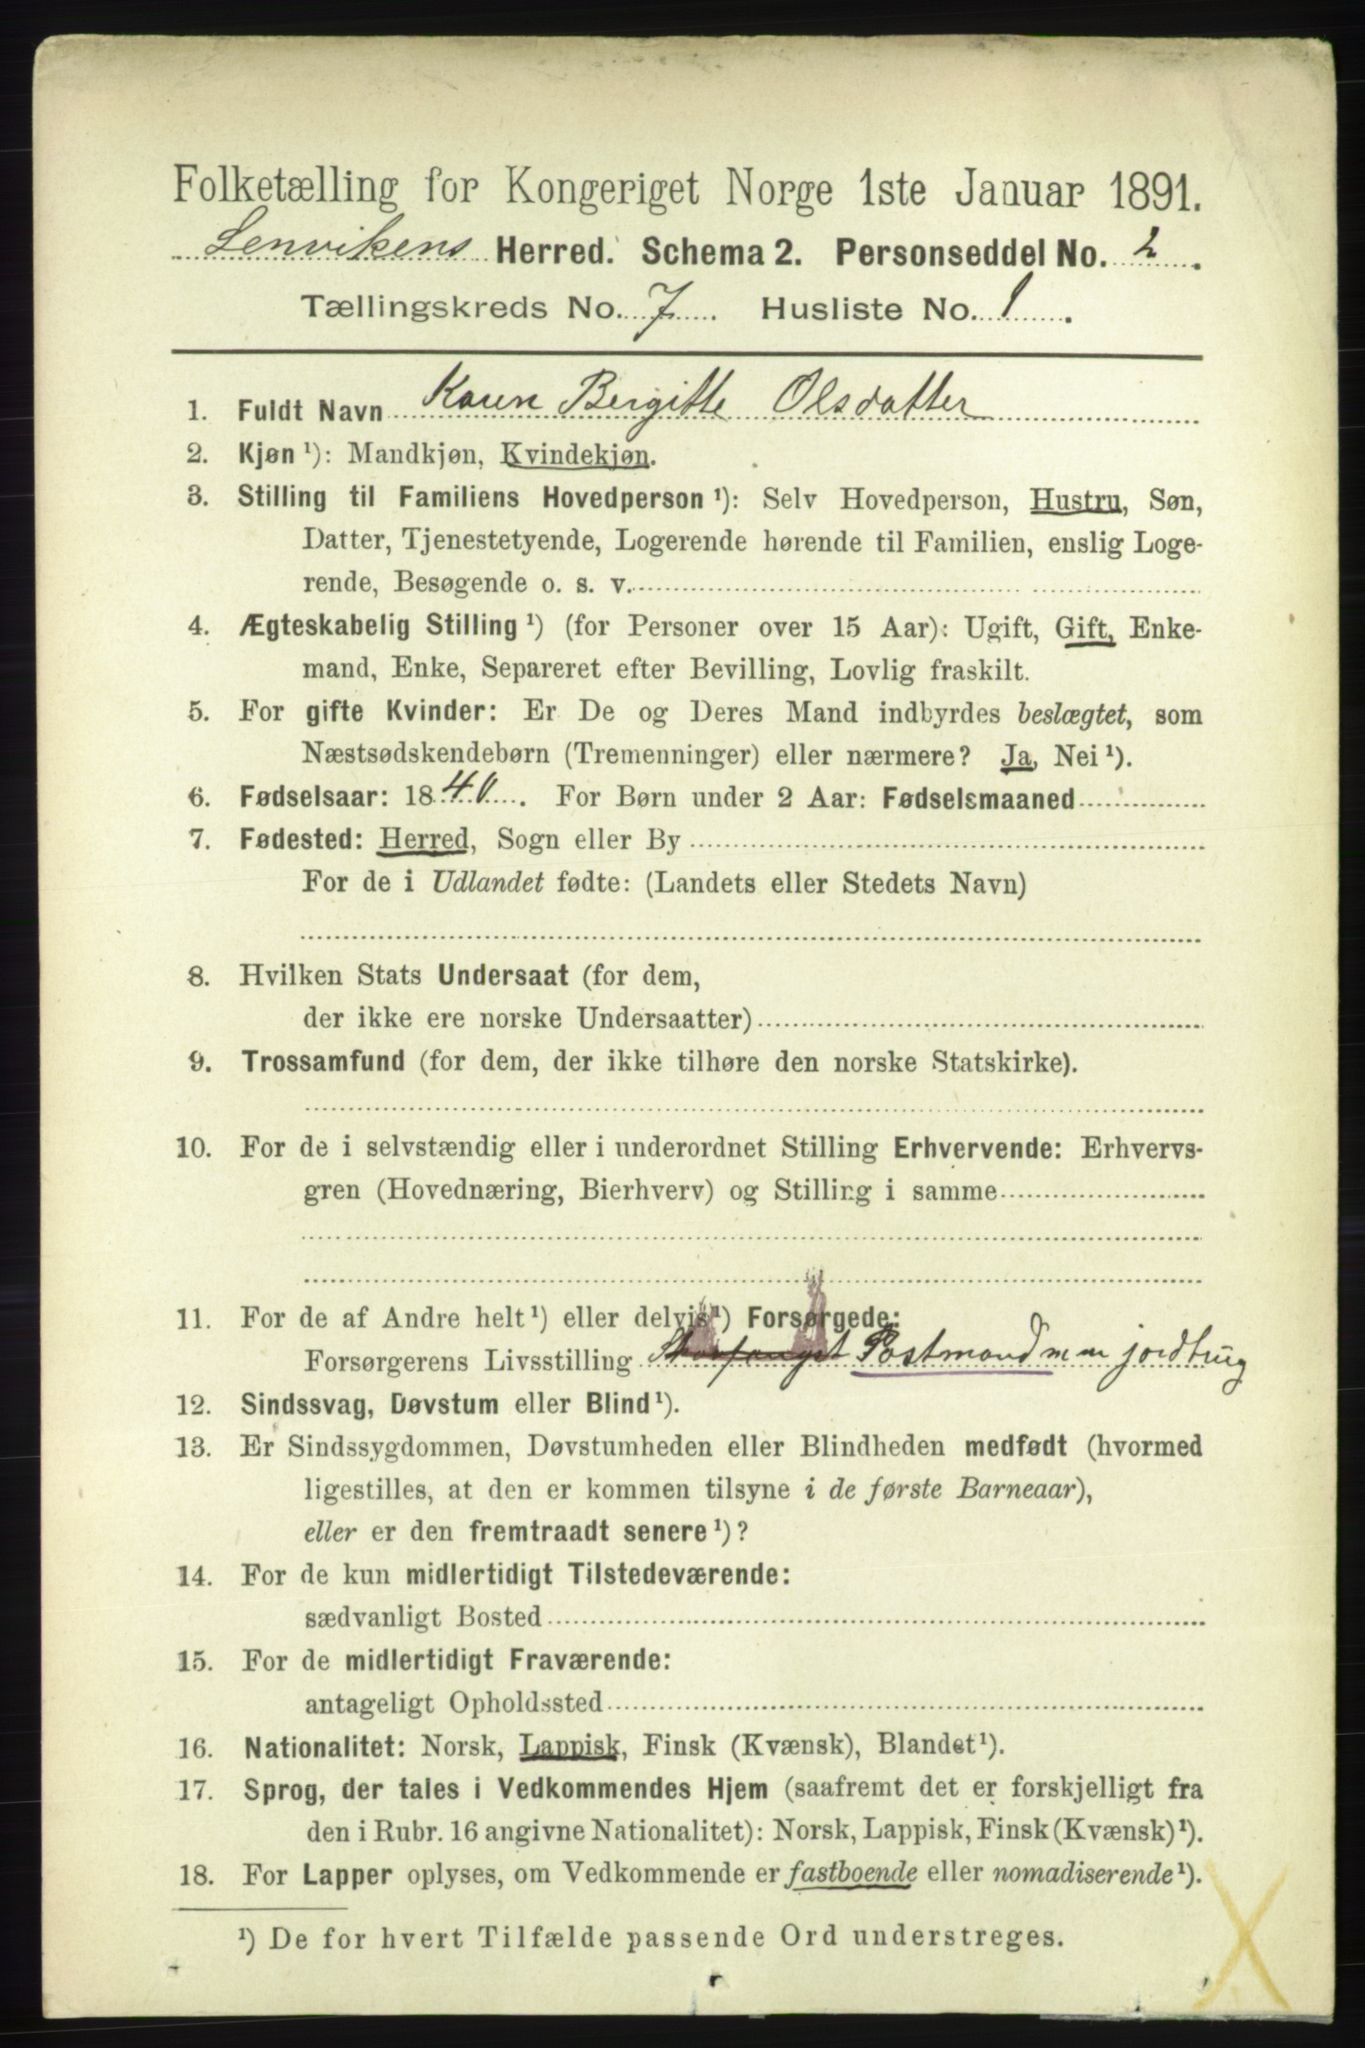 Folketælling for Kongeriget Norge 1ste Januar 1891.
Lenvikens Herred. Schema 2. Personseddel No. 2.
Tællingskreds No. 7. Husliste No. 1.
1. Fuldt Navn Karen Bergitte Olsdatter
2. Kjøn ¹): Mandkjøn, Kvindekjøn.
3. Stilling til Familiens Hovedperson ¹): Selv Hovedperson, Hustru, Søn,
Datter, Tjenestetyende, Logerende hørende til Familien, enslig Loge-
rende, Besøgende o. s. v.
4. Ægteskabelig Stilling ¹) (for Personer over 15 Aar): Ugift, Gift, Enke-
mand, Enke, Separeret efter Bevilling, Lovlig fraskilt.
5. For gifte Kvinder: Er De og Deres Mand indbyrdes beslægtet, som
Næstsødskendebørn (Tremenninger) eller nærmere? Ja, Nei ¹).
6. Fødselsaar: 1840. For Børn under 2 Aar: Fødselsmaaned
7. Fødested: Herred, Sogn eller By
For de i Udlandet fødte: (Landets eller Stedets Navn)
8. Hvilken Stats Undersaat (for dem,
der ikke ere norske Undersaatter)
9. Trossamfund (for dem, der ikke tilhøre den norske Statskirke).
10. For de i selvstændig eller i underordnet Stilling Erhvervende: Erhvervs-
gren (Hovednæring, Bierhverv) og Stilling i samme
11. For de af Andre helt ¹) eller delvis ¹) Forsørgede:
Forsørgerens Livsstilling Postmand jordbrug
12. Sindssvag, Døvstum eller Blind ¹).
13. Er Sindssygdommen, Døvstumheden eller Blindheden medfødt (hvormed
ligestilles, at den er kommen tilsyne i de første Barneaar),
eller er den fremtraadt senere ¹)?
14. For de kun midlertidigt Tilstedeværende:
sædvanligt Bosted
15. For de midlertidigt Fraværende:
antageligt Opholdssted
16. Nationalitet: Norsk, Lappisk, Finsk (Kvænsk), Blandet ¹).
17. Sprog, der tales i Vedkommendes Hjem (saafremt det er forskjelligt fra
den i Rubr. 16 angivne Nationalitet): Norsk, Lappisk, Finsk (Kvænsk) ¹).
18. For Lapper oplyses, om Vedkommende er fastboende eller nomadiserende ¹).
¹) De for hvert Tilfælde passende Ord understreges.